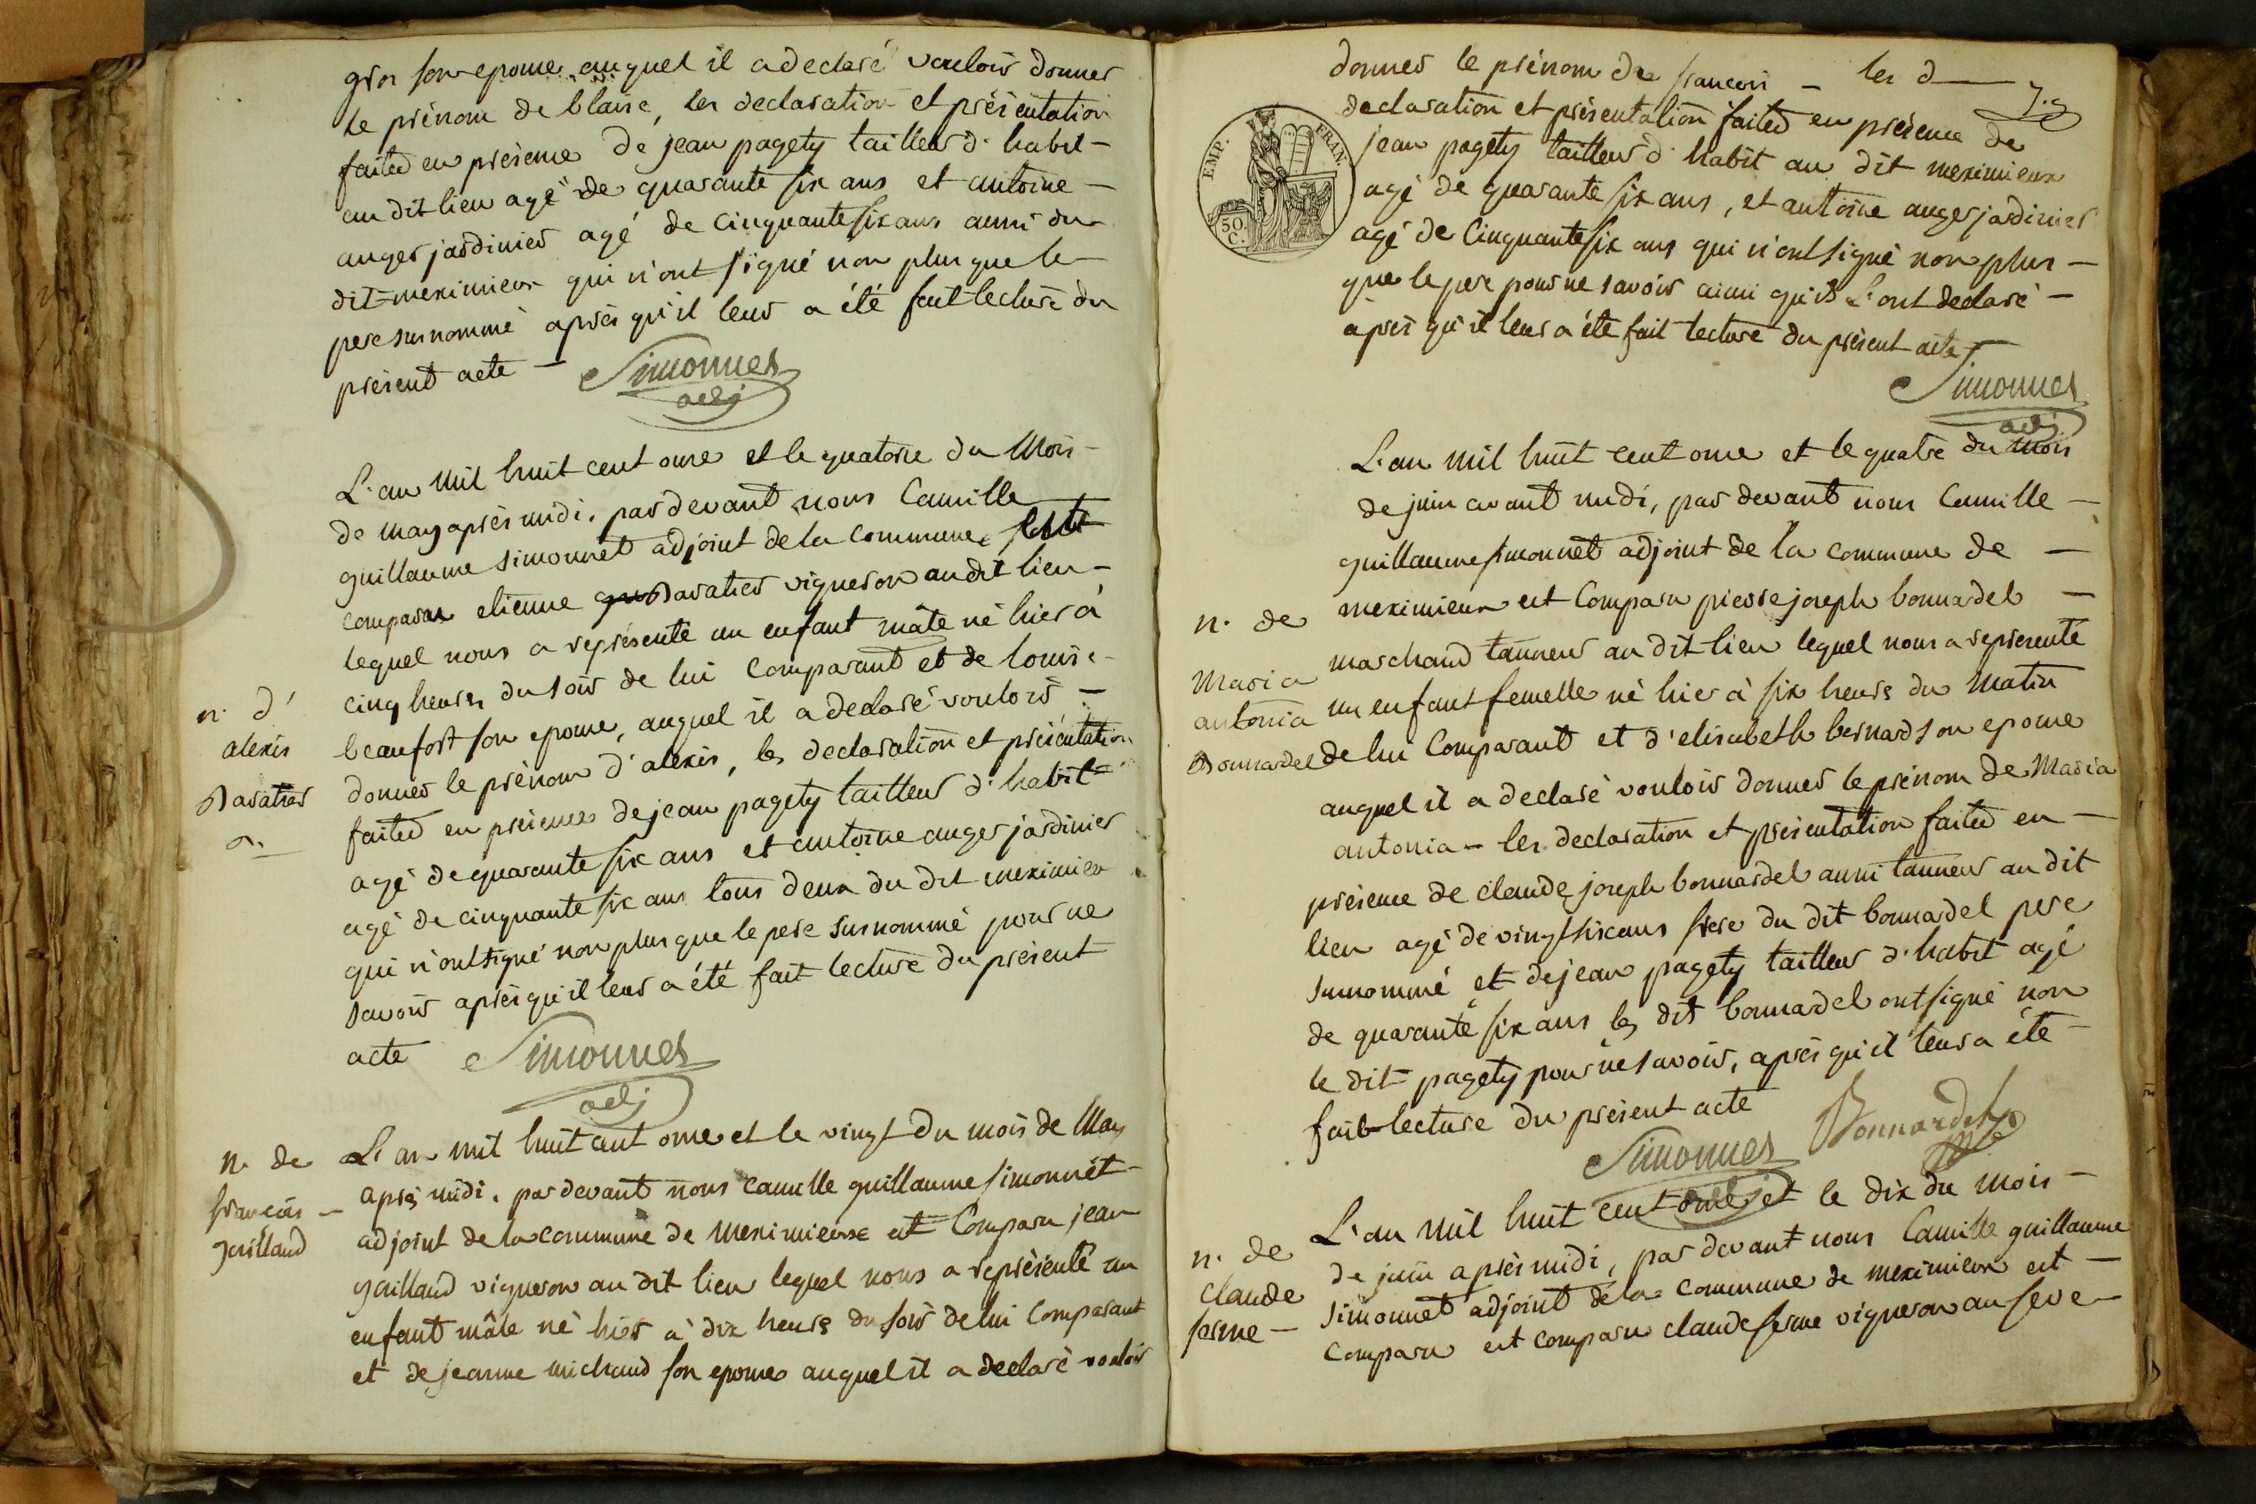 gros son epouse auquel il a declaré vouloir donner
le prénom de blaise, les declaration et présentation
faited en présence de jean pagety tailleur d'habit
au dit lieu agé de quarante six ans et antoine
auger jardinier agé de cinquante six ans aussi du
dit meximieux qui n'ont signé non plus que le
pere susnommé après qu'il leur a été fait lecture du
présent acte
Simonnet
adj
L'an mil huit cent onze et le quatorze du Mois
de may après midi. par devant nous Camille
guillaume simonnet adjoint de la commune
comparu etienne baratier vigneron au dit lieu
lequel nous a représenté un enfant mâle né hier à
cinq heures du soir de lui comparant et de louise
n. d'
alexis
Baratier
beaufort son epouse, auquel il a declaré vouloir
donner le prénom d'alexis, les declaration et présentation
faited en présence de jean pagety tailleur d'habit
agé de quarante six ans et antoine auger jardinier
agé de cinquante six ans tous deux du dit meximieu
qui n'ont signé non plus que le pere susnommé pour ne
savoir après qu'il leur a été fait lecture du présent
acte
Simonnet
adj
n. de
françois
gaillaud
L'an mil huit cent onze et le vingt du mois de May
après midi. par devant nous camille guillaume simonnet
adjoint de la commune de meximieux est Comparu jean
gaillaud vigneron au dit lieu lequel nous a représenté un
enfant mâle né hier à dix heures du soir de lui Comparant
et de jeanne michaud son epouse auquel il a declaré vouloir
donner le prénom de francois les d
declaration et présentation faited en présence de
jean pagety tailleur d'habit au dit meximieux
agé de quarante six ans, et antoine auger jardinier
agé de Cinquante six ans qui n'ont signé non plus
que le pere pour ne savoir ainsi qu'ils l'ont declaré
après qu'il leur a été fait lecture du présent acte
EMP. FRAN.
50
C.
Simonnet
adj
L'an mil huit cent onze et le quatre du mois
de juin avant midi, par devant nous Camille
guillaume simonnet adjoint de la commune de
meximieux est Comparu pierre joseph bonnardel
n. de
Maria
antonia
Bonnardel
marchand tanneur au dit lieu lequel nous a représenté
un enfant femelle né hier à six heures du Matin
de lui Comparant et d'elisabeth bernard son epouse
auquel il a declaré vouloir donner le prénom de Maria
antonia - les declaration et présentation faited en
présence de claude joseph bonnardel aussi tanneur au dit
lieu agé de vingt six ans frere du dit bonnardel pere
susnommé et de jean pagety tailleur d'habit agé
de quarante six ans les dit bonnardel ont signé non
le dit pagety pour ne savoir, après qu'il leur a été
fait lecture du présent acte
Simonnet
adj
Bonnardel
n. de
claude
ferme
L'an mil huit cent onze et le dix du mois
de juin après midi, par devant nous Camille guillaume
simonnet adjoint de la commune de meximieux est
comparu est comparu claude ferme vigneron au